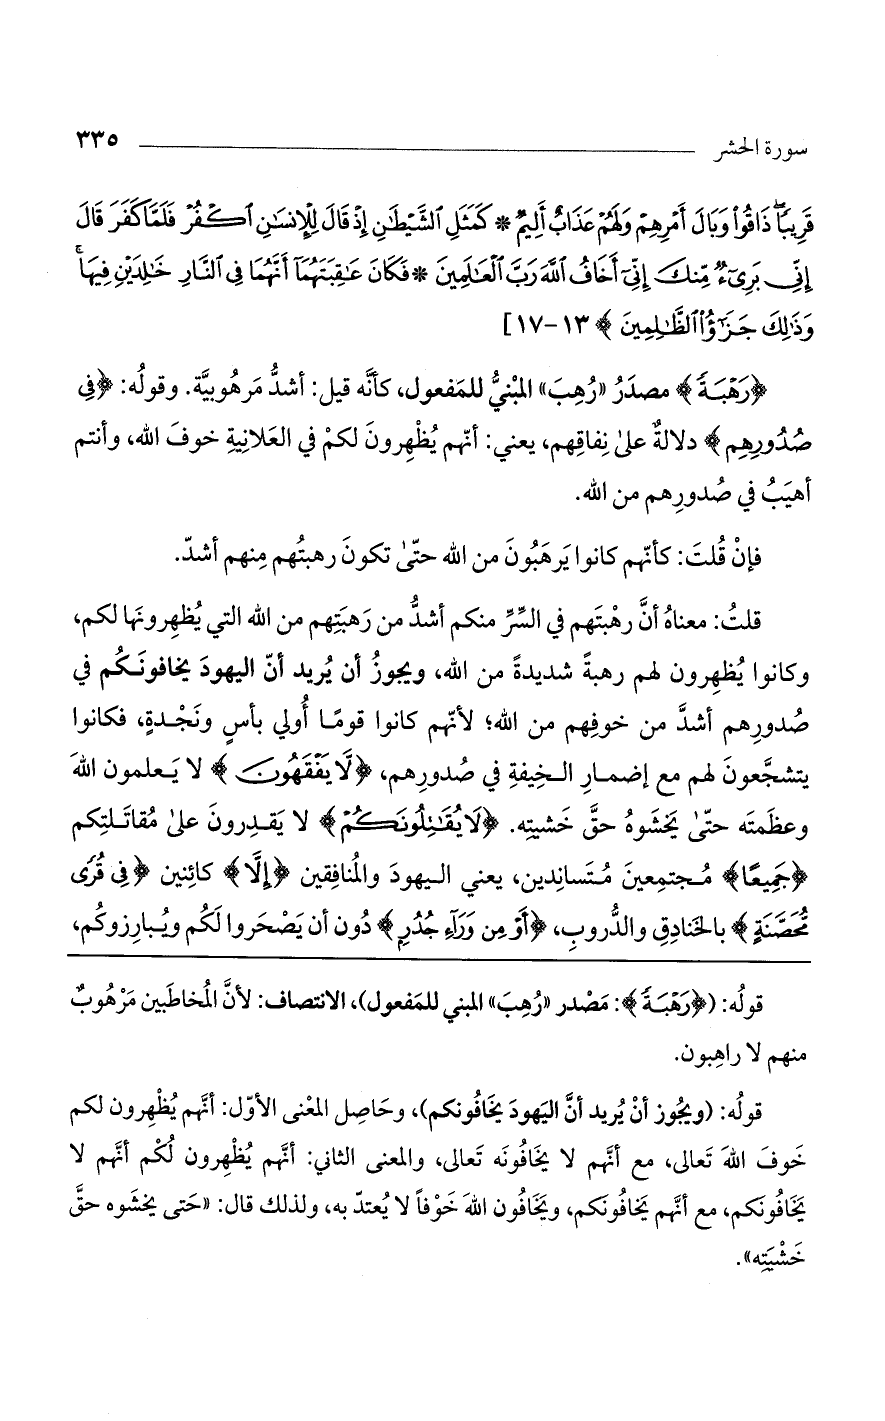 سورة الحشر ٣٣٥
قَرِيبًا ذَاقُوا۟ وَبَالَ أَمْرِهِمْ وَلَهُمْ عَذَابٌ أَلِيمٌ * كَمَثَلِ ٱلشَّيْطَٰنِ إِذْ قَالَ لِلْإِنسَٰنِ ٱكْفُرْ فَلَمَّا كَفَرَ قَالَ
إِنِّى بَرِىٓءٌ مِّنكَ إِنِّىٓ أَخَافُ ٱللَّهَ رَبَّ ٱلْعَٰلَمِينَ * فَكَانَ عَٰقِبَتَهُمَآ أَنَّهُمَا فِى ٱلنَّارِ خَٰلِدَيْنِ فِيهَا ۚ
وَذَٰلِكَ جَزَٰٓؤُا۟ ٱلظَّٰلِمِينَ ﴾ ١٣-١٧]
﴿رَهْبَةً﴾ مصدَرُ «رُهِبَ» المبْنيُّ للمَفعول، كأنَّه قيل: أشدُّ مَرهُوبيَّة. وقولُه: ﴿فِى
صُدُورِهِم﴾ دلالةٌ علىٰ نِفاقِهم، يعني: أنّهم يُظْهِرونَ لكمْ في العَلانِيةِ خوفَ الله، وأنتم
أهيَبُ في صُدورِهم من الله.
فإنْ قُلتَ: كأنّهم كانوا يَرهَبُونَ من الله حتّىٰ تكونَ رهبتُهم مِنهم أشدّ.
قلتُ: معناهُ أنَّ رهْبتَهم في السِّرِّ منكم أشدُّ من رَهبَتِهم من الله التي يُظهِرونَها لكم،
وكانوا يُظهِرون لهم رهبةً شديدةً من الله، ويجوزُ أن يُريد أنّ اليهودَ يخافونَكُم في
صُدورِهم أشدَّ من خوفِهم من الله؛ لأنّهم كانوا قومًا أُولي بأسٍ ونَجْدةٍ، فكانوا
يتشجَّعونَ لهم مع إضمارِ الخِيفةِ في صُدورِهم، ﴿لَّا يَفْقَهُونَ﴾ لا يَعلمون اللهَ
وعظَمتَه حتّىٰ يَخشَوهُ حقَّ خَشيتِه. ﴿لَا يُقَٰتِلُونَكُمْ﴾ لا يَقدِرونَ علىٰ مُقاتَلتِكم
﴿جَمِيعًا﴾ مُجتمِعينَ مُتَسانِدين، يعني اليهودَ والمُنافِقين ﴿إِلَّا﴾ كائِنين ﴿فِى قُرًى
مُّحَصَّنَةٍ﴾ بالخَنادِقِ والدُّروبِ، ﴿أَوْ مِن وَرَآءِ جُدُرٍ﴾ دُون أن يَصْحَروا لَكُم ويُبارِزوكُم،
قولُه: (﴿رَهْبَةً﴾: مَصْدر «رُهِبَ» المبني للمَفعول)، الانتصاف: لأنَّ المُخاطَبين مَرْهُوبٌ
منهم لا راهِبون.
قولُه: (ويجُوز أنْ يُريد أنَّ اليَهودَ يَخافُونكم)، وحَاصِل المعْنى الأوّل: أنَّهم يُظْهِرون لكم
خَوفَ اللهَ تَعالى، مع أنَّهم لا يَخافُونَه تَعالى، والمعنى الثاني: أنَّهم يُظْهِرون لُكْم أنَّهم لا
يَخَافُونَكم، مع أنَّهم يَخافُونَكم، ويَخَافُون اللهَ خَوْفاً لا يُعتدّ به، ولذلك قال: «حَتى يخشَوه حقَّ
خَشْيَتِه».